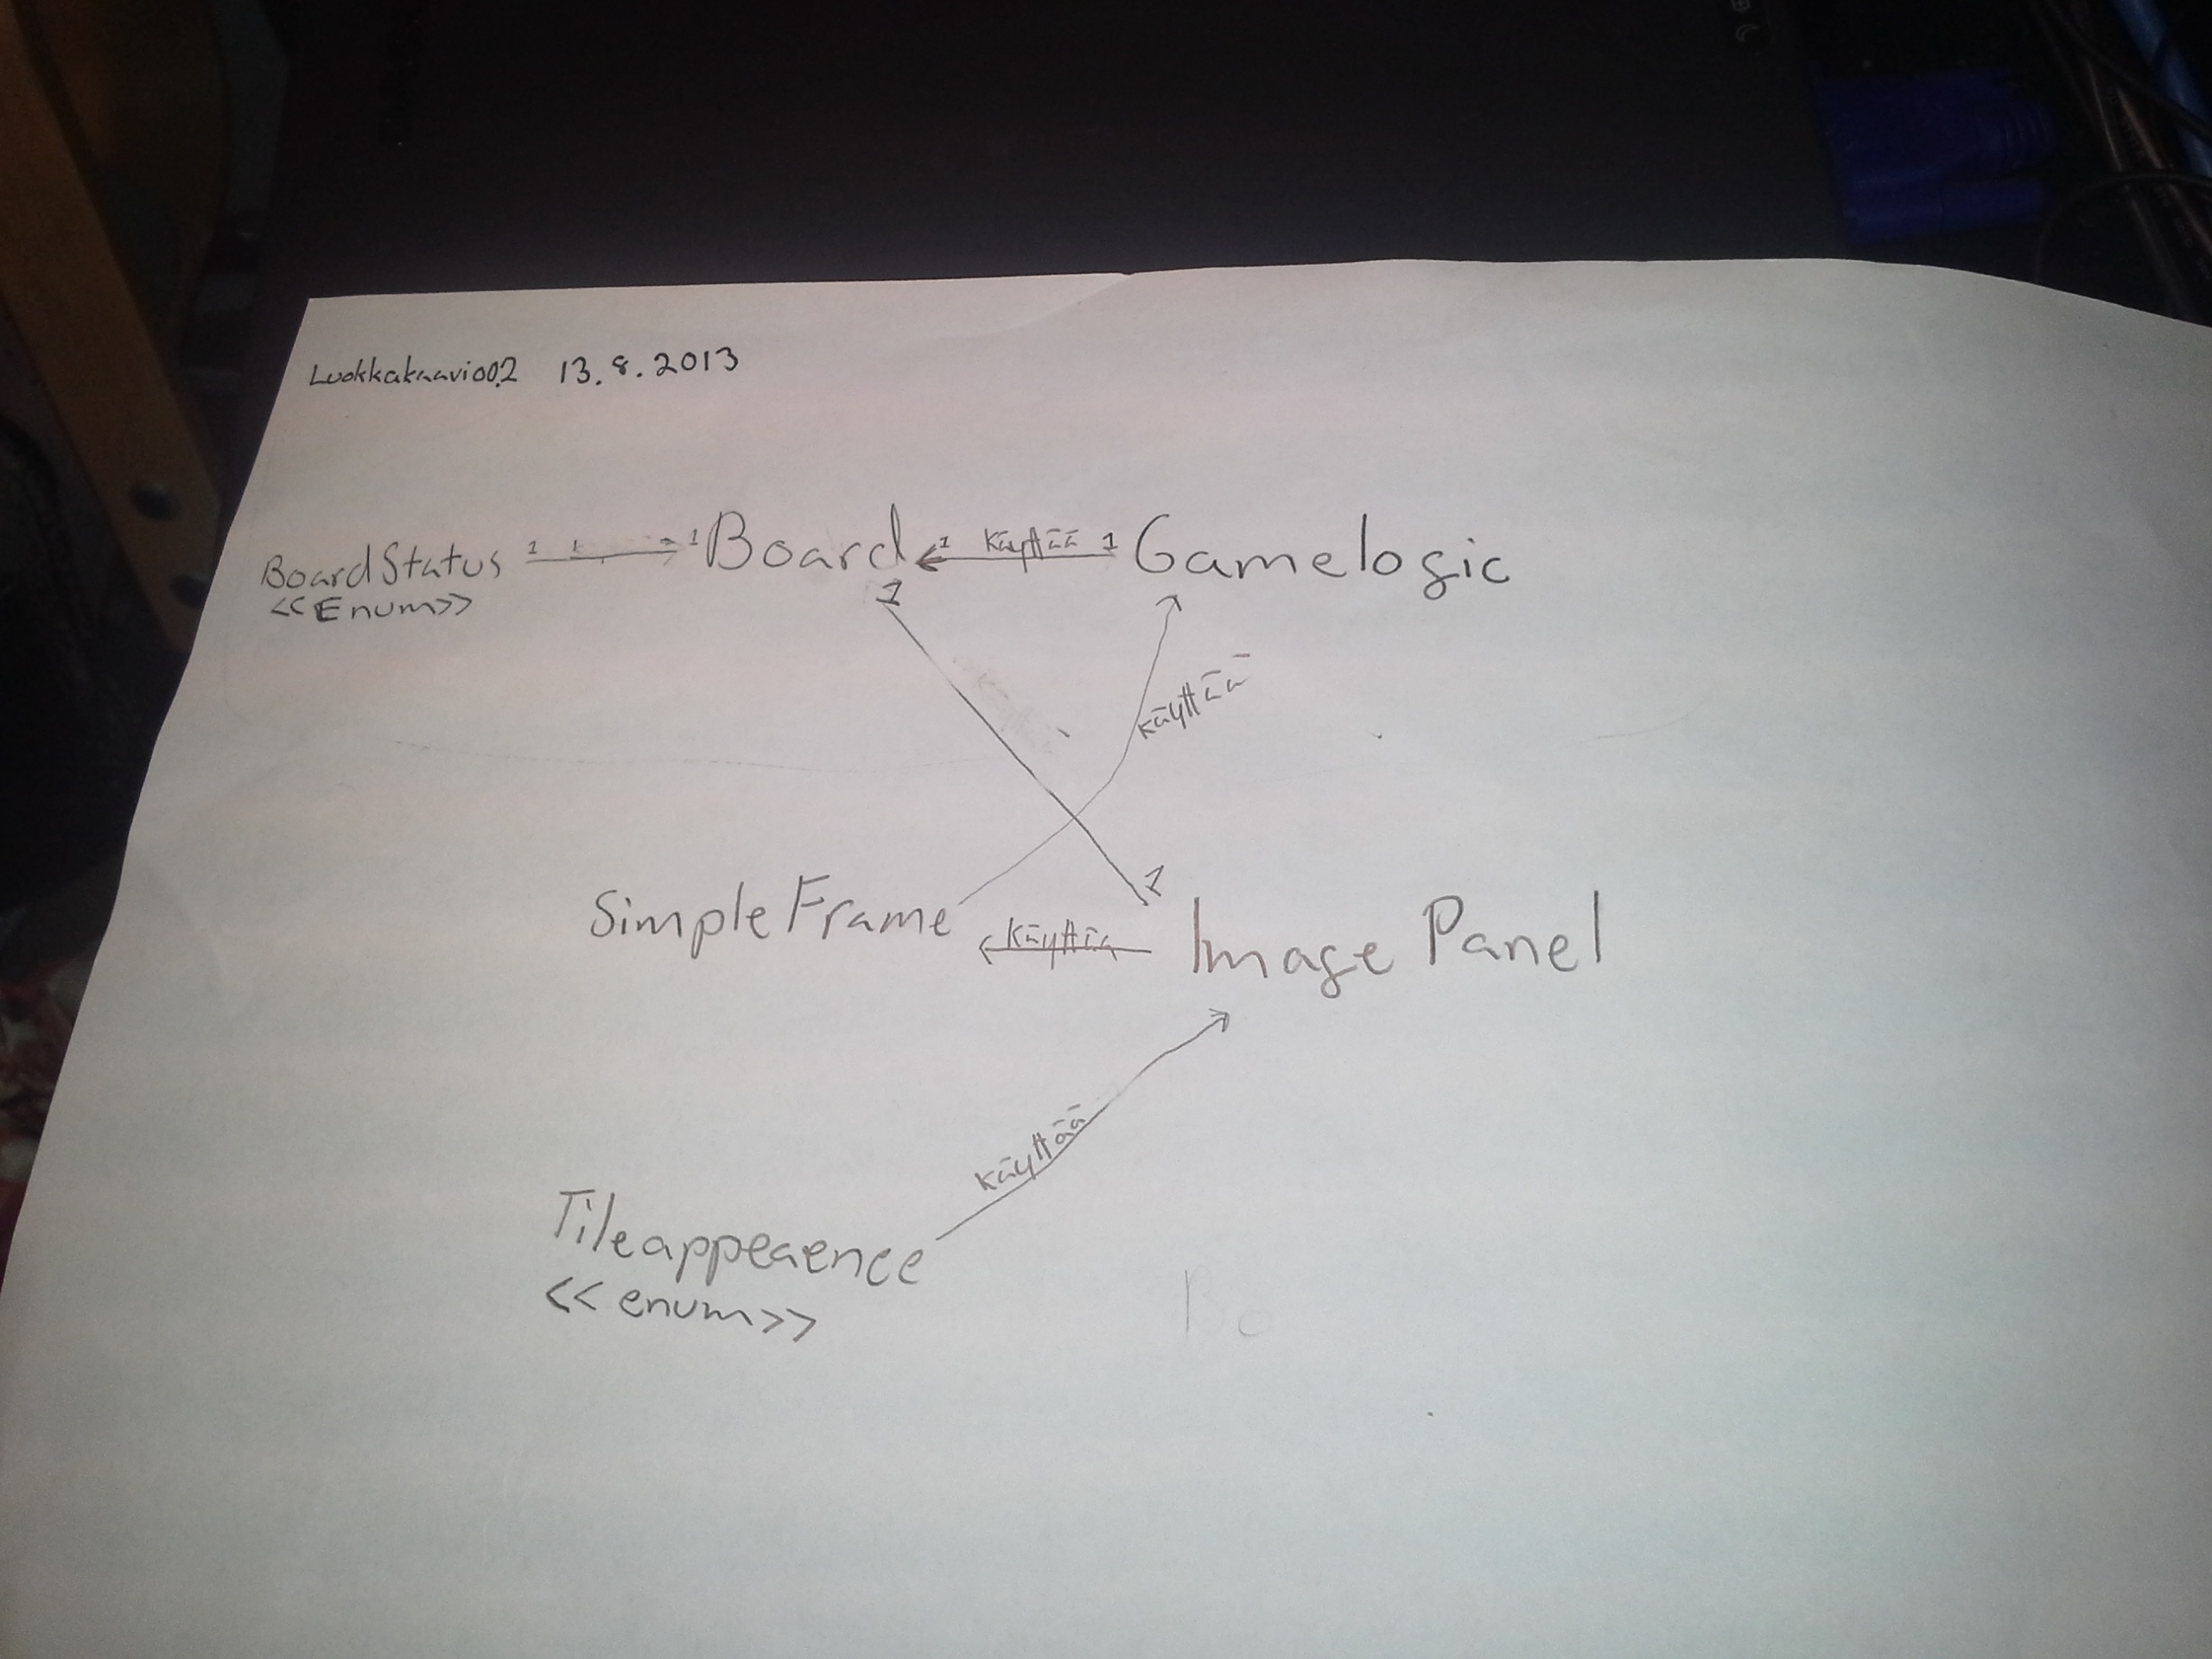 Luokkakaavio02 13.8.2013
BoardStatus 1 1 Board 1 käyttää 1 Gamelogic
<<Enum>>
1
käyttää
1
SimpleFrame käyttää Image Panel
käyttää
Tileappearence
<<enum>>
Bo